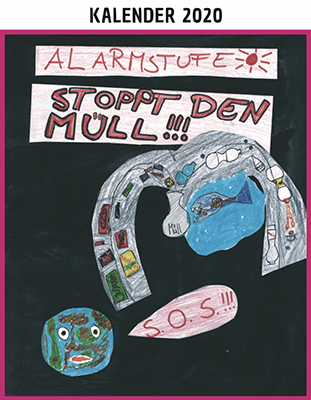 KALENDER 2020
ALARMSTUFE
STOPPT DEN
MÜLL!!!
Müll
S.O.S.!!!